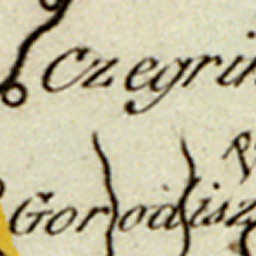 Czegrin
Gorodisz